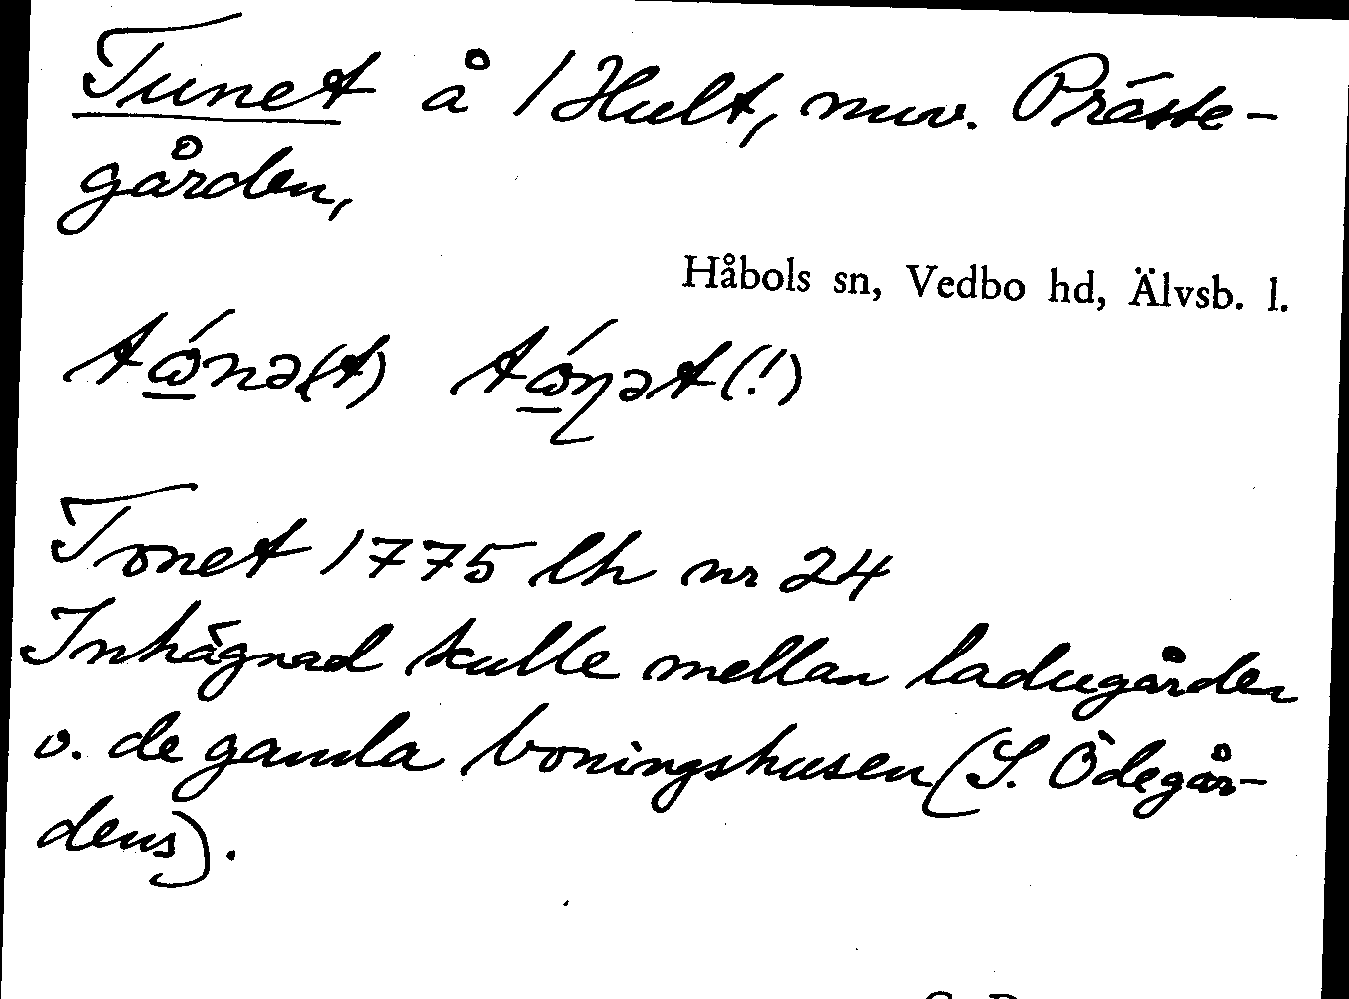 Tunet å 1 Hult, nuv. Präste-
gården,
Håbols sn, Vedbo hd, Älvsb. l.
tώ̲nə(t) tώ̲ŋət(!)
Tonet 1775 lh nr 24
Inhägnad kulle mellan ladugården
o. de gamla boningshusen (S. Ödegår-
dens).